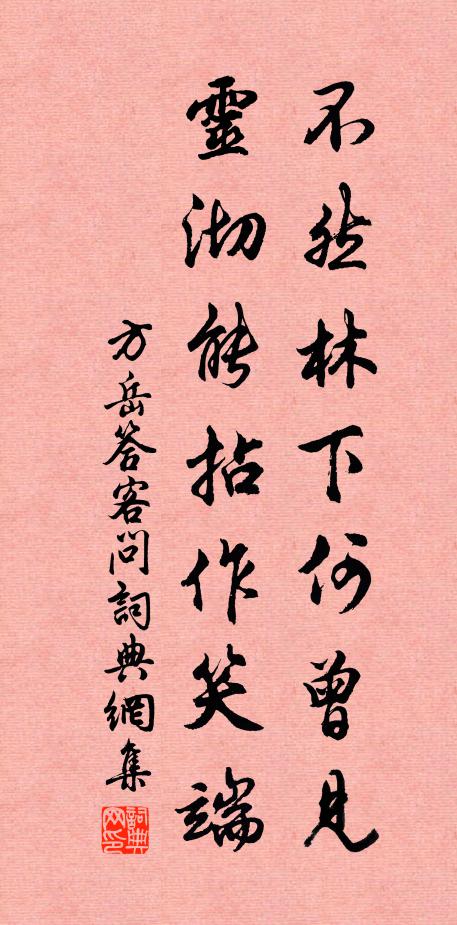 不然林下何曾見
靈沏能拈作笑端
方岳答客問詞典網集
詞典网印